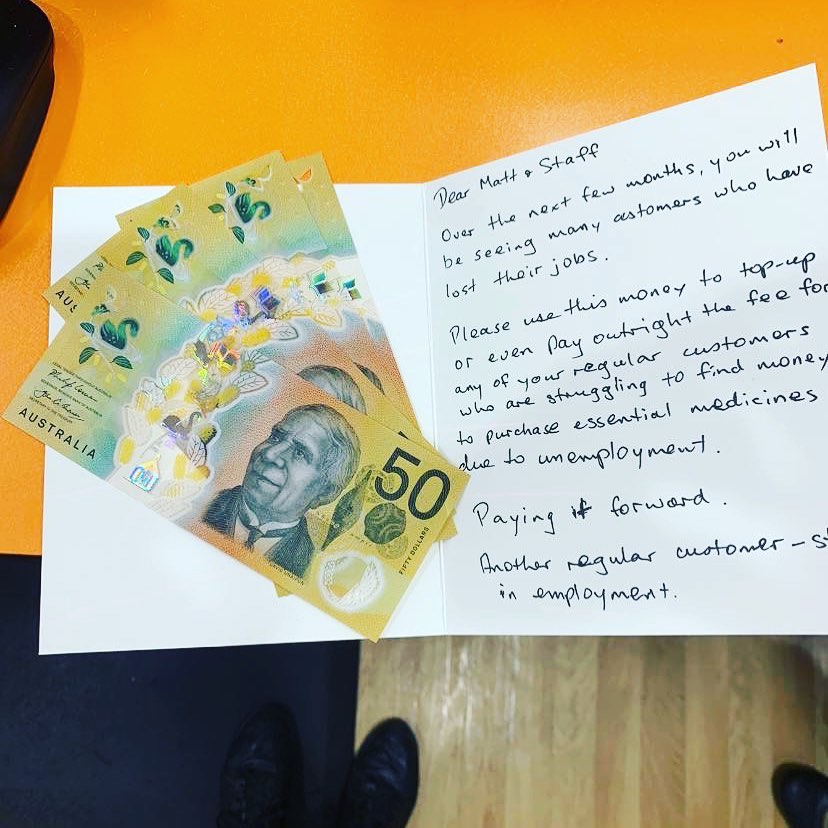 Dear Matt & Staff
Over the next few months, you will
be seeing many customers who have
lost their jobs.
Please use this money to top-up
or even pay outright the fee for
any of your regular customers
who are struggling to find money
to purchase essential medicines
due to unemployment.
Paying it forward.
Another regular customer -
in employment.
AUS
AUSTRALIA
50
FIFTY DOLLARS